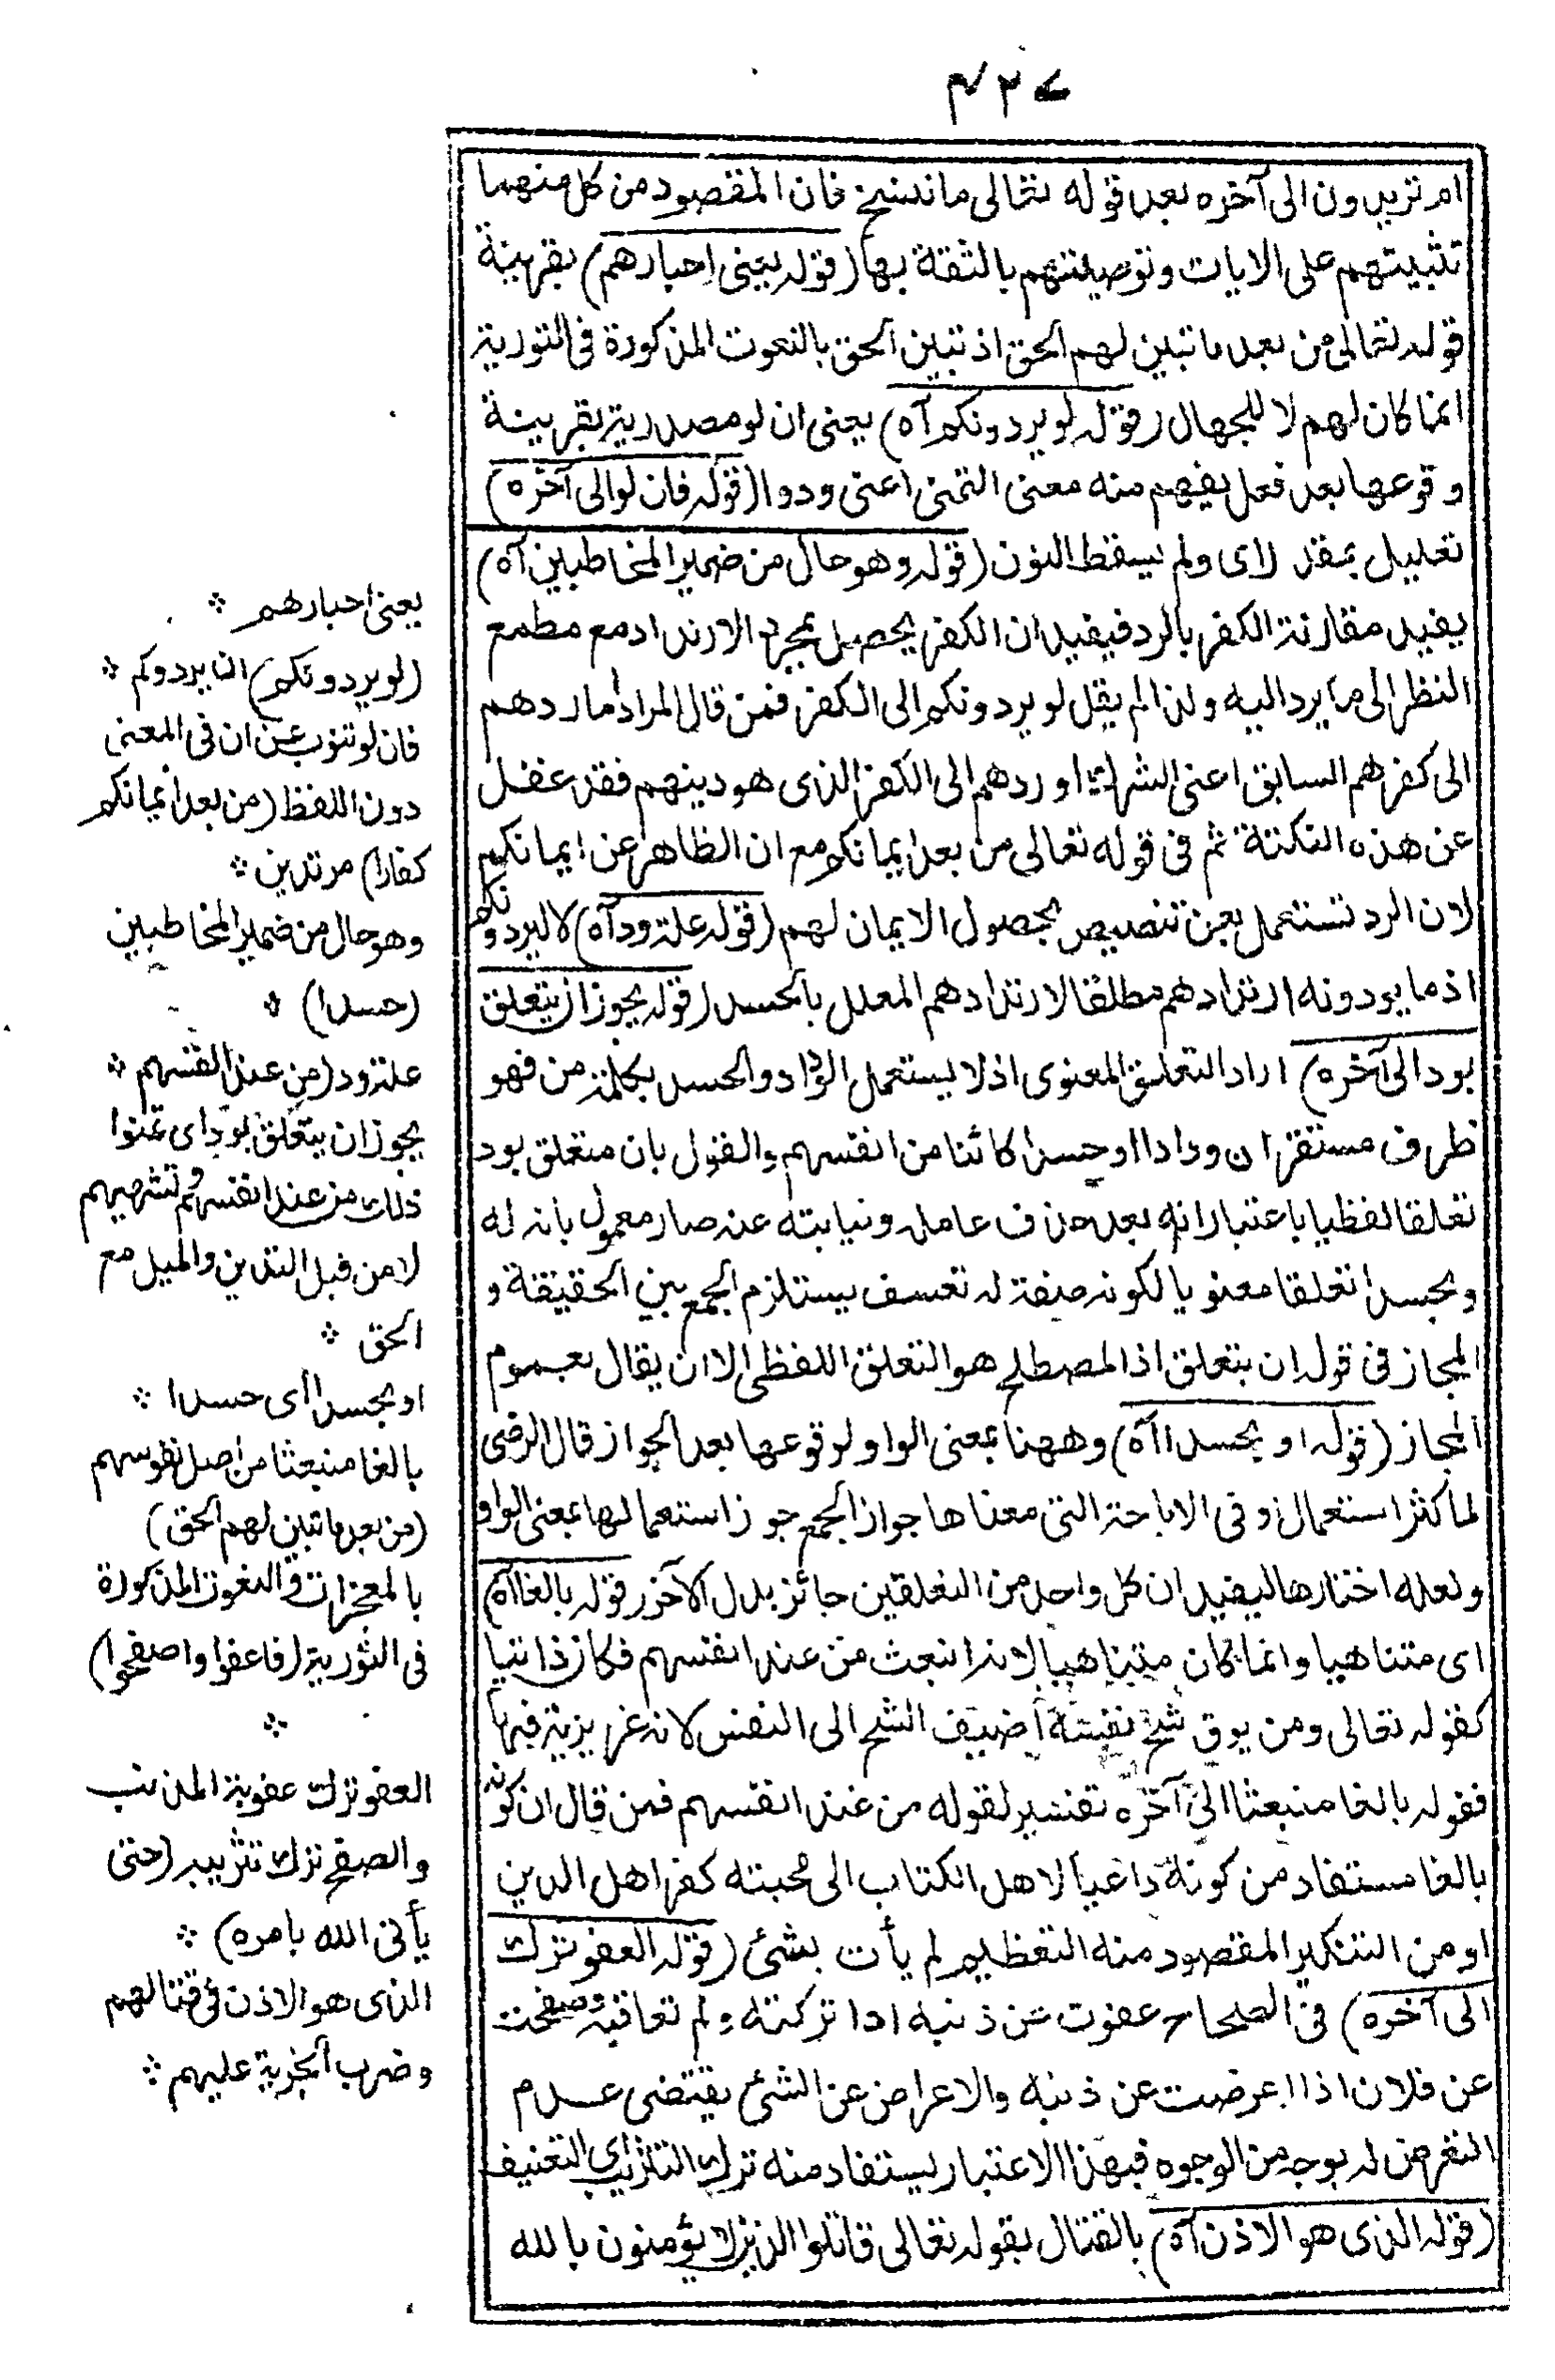 ٤٢٧
ام تريدون الى آخره بعد قوله تعالى ما ننسخ فان المقصود من كل منهما
تثبيتهم على الايات وتوصيتهم بالثقة بها (قوله يعنى احبارهم) بقرينة
قوله تعالى من بعد ما تبين لهم الحق اذ تبين الحق بالنعوت المذكورة فى التورية
انما كان لهم لا للجهال (قوله لو يردونكم آه) يعنى ان لو مصدرية بقرينة
وقوعها بعد فعل يفهم منه معنى التمنى اعنى ودوا (قوله فان لو الى آخره)
تعليل بمقدر اى ولم يسقط النون (قوله وهو حال من ضمير المخاطبين آه)
يفيد مقارنة الكفر بالرد فيفيد ان الكفر يحصل بمجرد الارتداد مع مطمع
النظر الى ما يرد اليه ولذا لم يقل لو يردونكم الى الكفر فمن قال المراد اما ردهم
الى كفرهم السابق اعنى الشرك او ردهم الى الكفر الذى هو دينهم فقد غفل
عن هذه النكتة ثم فى قوله تعالى من بعد ايمانكم مع ان الظاهر عن ايمانكم
لان الرد تستعمل بعن تنصيص بحصول الايمان لهم (قوله علة ود آه) لا ليردونكم
اذ ما يودونه ارتدادهم مطلقا لا ارتدادهم المعلل بالحسد (قوله يجوز ان يتعلق
بود الى آخره) اراد التعلق المعنوى اذ لا يستعمل الوداد والحسد بكلمة من فهو
ظرف مستقر ان ودادا او حسدا كائنا من انفسهم والقول بان متعلق بود
تعلقا لفظيا باعتبار انه بعد حذف عامله ونيابته عنه صار معمولا بانه له
وبحسدا تعلقا معنويا لكونه صفة له تعسف يستلزم الجمع بين الحقيقة و
المجاز فى قوله ان يتعلق اذ المصطلح هو التعلق اللفظى الا ان يقال بعموم
المجاز (قوله او بحسدا آه) وههنا بمعنى الواو لوقوعها بعد الجواز قال الرضى
لما كثر استعمال او فى الاباحة التى معناها جواز الجمع جوز استعمالها بمعنى الواو
ولعله اختارها ليفيد ان كل واحد من التعلقين جائز بدل الآخر (قوله بالغا آه)
اى متناهيا وانما كان متناهيا لانه انبعث من عند انفسهم فكان ذاتيا
كقوله تعالى ومن يوق شح نفسه اضيف الشح الى النفس لانه غريزية فيها
فقوله بالغا منبعثا الى آخره تفسير لقوله من عند انفسهم فمن قال ان كونه
بالغا مستفاد من كونه داعيا لاهل الكتاب الى محبته كفر اهل الدين
او من التنكير المقصود منه التعظيم لم يأت بشئ (قوله العفو ترك
الى آخره) فى الصحاح عفوت عن ذنبه اذا تركته ولم تعاقبه وصفحت
عن فلان اذا اعرضت عن ذنبه والاعراض عن الشئ يقتضى عدم
التعرض له بوجه من الوجوه فبهذا الاعتبار يستفاد منه ترك التثريب اى التعنيف
(قوله الذى هو الاذن آه) بالقتال بقوله تعالى قاتلوا الذين لا يؤمنون بالله
يعنى احبارهم
(لو يردونكم) ان يردوكم
فان لو تنوب عن ان فى المعنى
دون اللفظ (من بعد ايمانكم
كفارا) مرتدين
وهو حال من ضمير المخاطبين
(حسدا)
علة ود (من عند انفسهم
يجوز ان يتعلق بود اى تمنوا
ذلك من عند انفسهم وتشهيهم
لا من قبل التدين والميل مع
الحق
او بحسدا اى حسدا
بالغا منبعثا من اصل نفوسهم
(من بعد ما تبين لهم الحق)
بالمعجزات والنعوت المذكورة
فى التورية (فاعفوا واصفحوا)
العفو ترك عقوبة المذنب
والصفح ترك تثريبه (حتى
يأتى الله بامره)
الذى هو الاذن فى قتالهم
وضرب الجزية عليهم